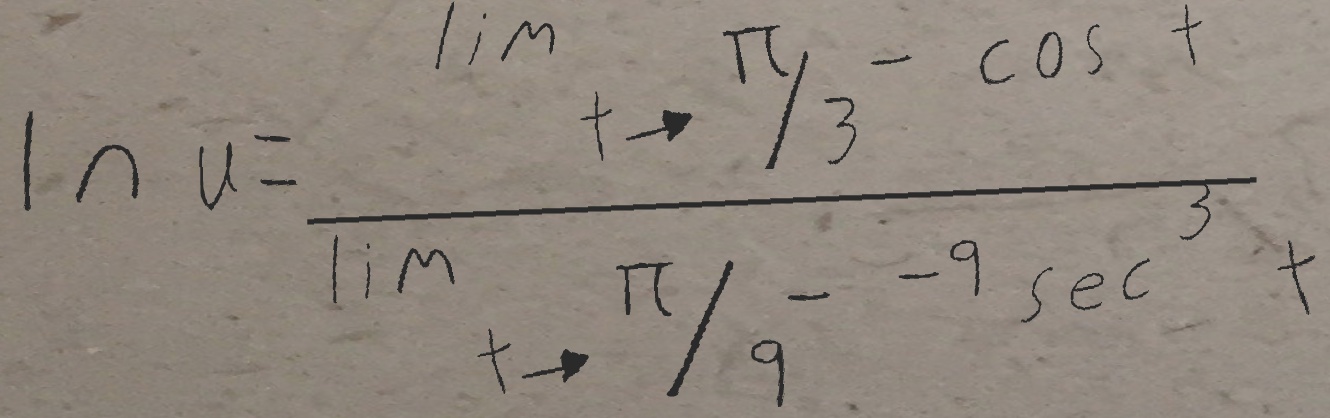 ln u = \frac{\lim_{t \to \pi/3^-} \cos t}{\lim_{t \to \pi/9^-} -9 \sec^3 t}